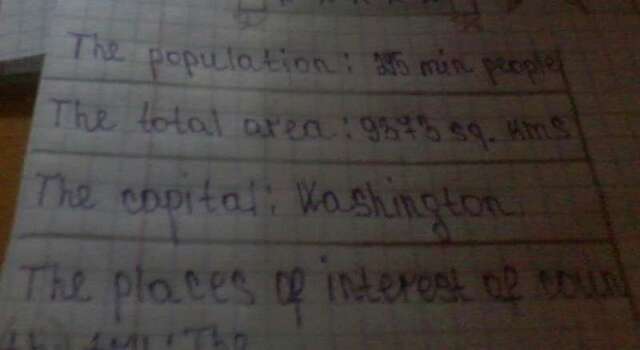 The population: 285 mln people
The total area: 9373 sq. kms
The capital: Washington
The places of interest of coun
The